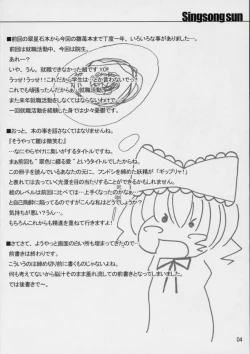 Singsong sun
■前回の翠星石本から今回の雛苺本まで丁度一年、いろいろな事がありました…。
前回は就職活動中、今回は院生。
あれー？
いや、うん。就職できなかった組ですYO!
うっせ!うっせ!!これだから学生は…とか言わないで…
これでも頑張ったんだからぁ…就職活動…
また来年就職活動をしなくてはならないわけで、
一回就職活動を経験した身では少々憂鬱です。
■おっと、本の事を話さなくてはなりませんね。
『そうやって雛は微笑む』
…なにやらやけに臭いがするタイトルですね。
まぁ前回も『翠色に綴る愛』というタイトルでしたからね。
この冊子を読んでいるあなたの元に、フンドシを締めた妖精が「ギップリャ！」
と垂れては去っていく光景を目の当たりにする
絵のレベルは前回に比べては…上手くなったのかなぁ…
と自己陶酔に陥ってるのですがこんな私はどうでしょうか？
気持ちが悪いですね…
もちろんこれからも精進を重ねて行きますよ！
■さてさて、ようやっと画面の白い所も埋まってきたので…
前書きは終わりです。
こういうのは締め切り前に書くものじゃないよね。
何も考えてないから脳汁そのまま垂れ流しての前書きとなってしまいました。
では後書きで〜。
04